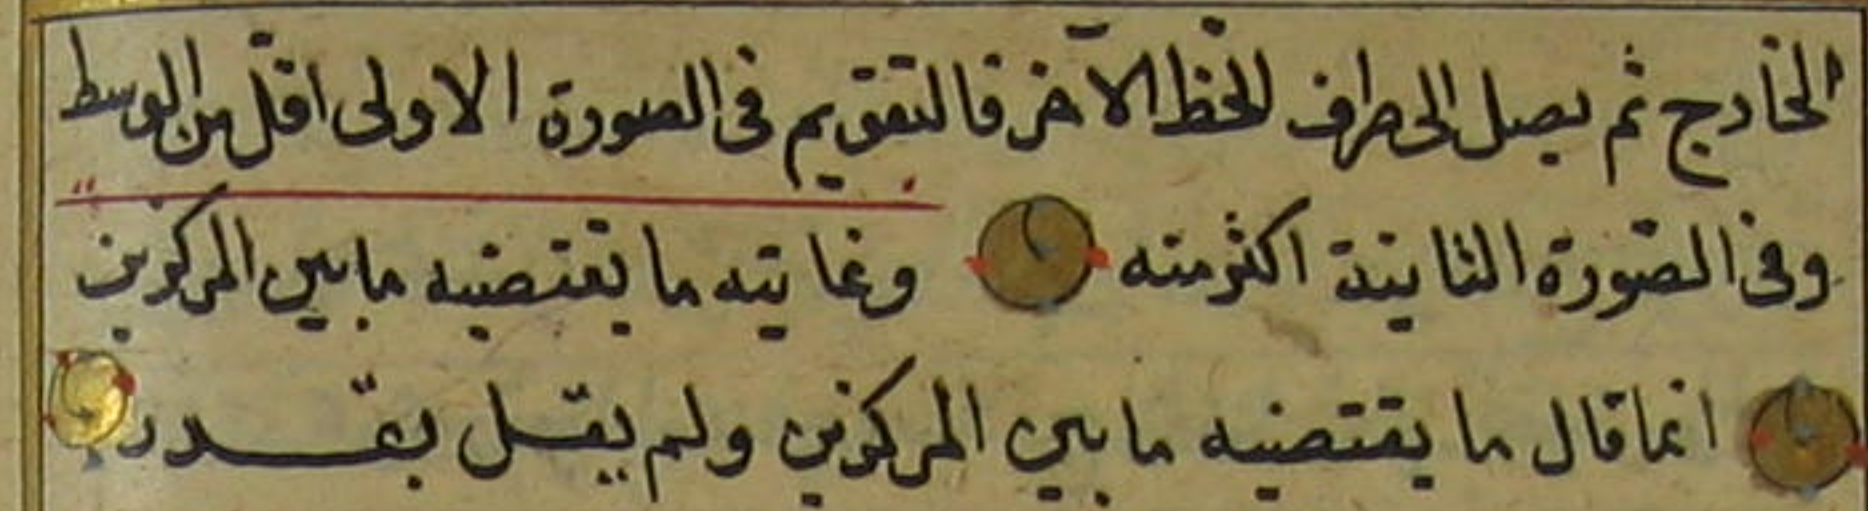 الخارج ثم يصل الى طرف الخط الآخر فالتقويم فى الصورة الاولى اقل من الوسط
وفى الصورة الثانية اكثر منه وغايته ما يقتضيه ما بين المركزين
انما قال ما يقتضيه ما بين المركزين ولم يقل بقدر